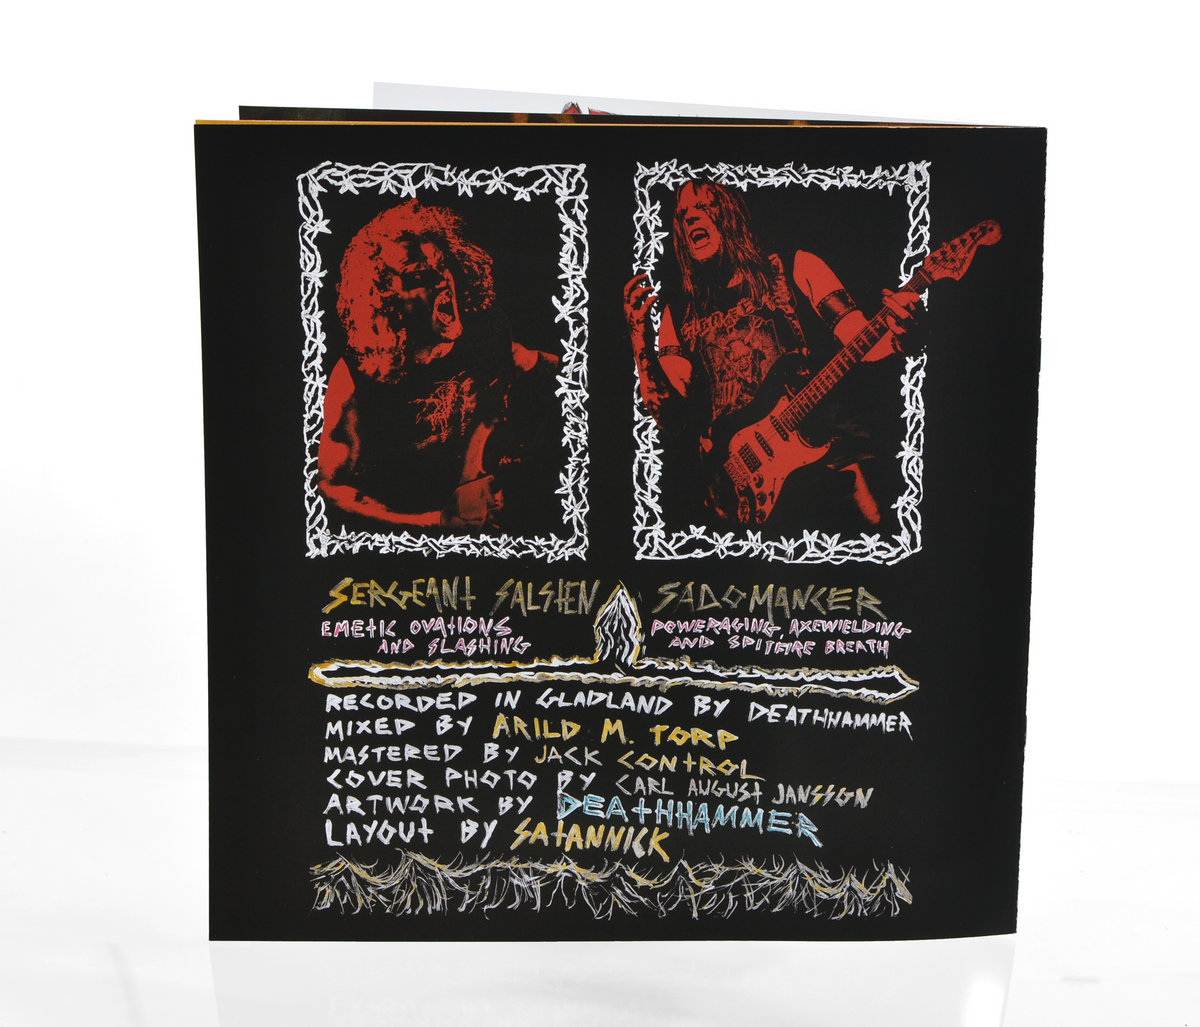 SERGEANT SALSTEN
EMETIC OVATIONS
AND SLASHING
SADOMANCER
POWERAGING, AXEWIELDING
AND SPITFIRE BREATH
RECORDED IN GLADLAND BY DEATHHAMMER
MIXED BY ARILD M. TORP
MASTERED BY JACK CONTROL
COVER PHOTO BY CARL AUGUST JANSSON
ARTWORK BY DEATHHAMMER
LAYOUT BY SATANNICK